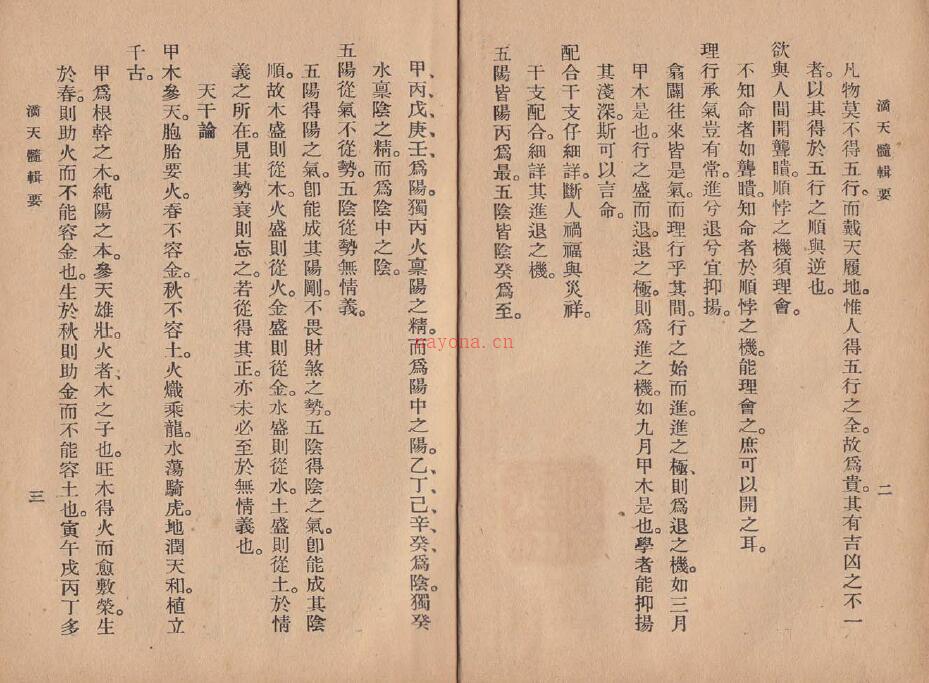 滴天髓輯要
二
凡物莫不得五行。而戴天履地。惟人得五行之全。故爲貴。其有吉凶之不一
者。以其得於五行之順與逆也。
欲與人間開聾聵。順悖之機須理會。
不知命者如聾聵。知命者於順悖之機。能理會之。庶可以開之耳。
理行承氣豈有常。進兮退兮宜抑揚。
翕闢往來皆是氣。而理行乎其間。行之始而進。進之極、則爲退之機。如三月
甲木是也。行之盛而退。退之極。則爲進之機。如九月甲木是也。學者能抑揚
其淺深。斯可以言命。
配合干支仔細詳。斷人禍福與災祥。
干支配合。細詳其進退之機。
五陽皆陽丙爲最。五陰皆陰癸爲至。
甲、丙、戊、庚、壬爲陽。獨丙火稟陽之精。而爲陽中之陽。乙、丁、己、辛、癸爲陰。獨癸
水稟陰之精。而爲陰中之陰。
五陽從氣不從勢。五陰從勢無情義。
五陽得陽之氣。卽能成其陽剛。不畏財煞之勢。五陰得陰之氣。卽能成其陰
順。故木盛則從木。火盛則從火。金盛則從金。水盛則從水。土盛則從土。於情
義之所在。見其勢衰則忘之。若從得其正。亦未必至於無情義也。
天干論
甲木參天。胞胎要火。春不容金。秋不容土。火熾乘龍。水蕩騎虎。地潤天和。植立
千古。
甲爲根幹之木。純陽之本。參天雄壯。火者、木之子也。旺木得火而愈敷榮。生
於春。則助火而不能容金也。生於秋則助金而不能容土也。寅午戌丙丁多
滴天髓輯要
三
nayona.cn